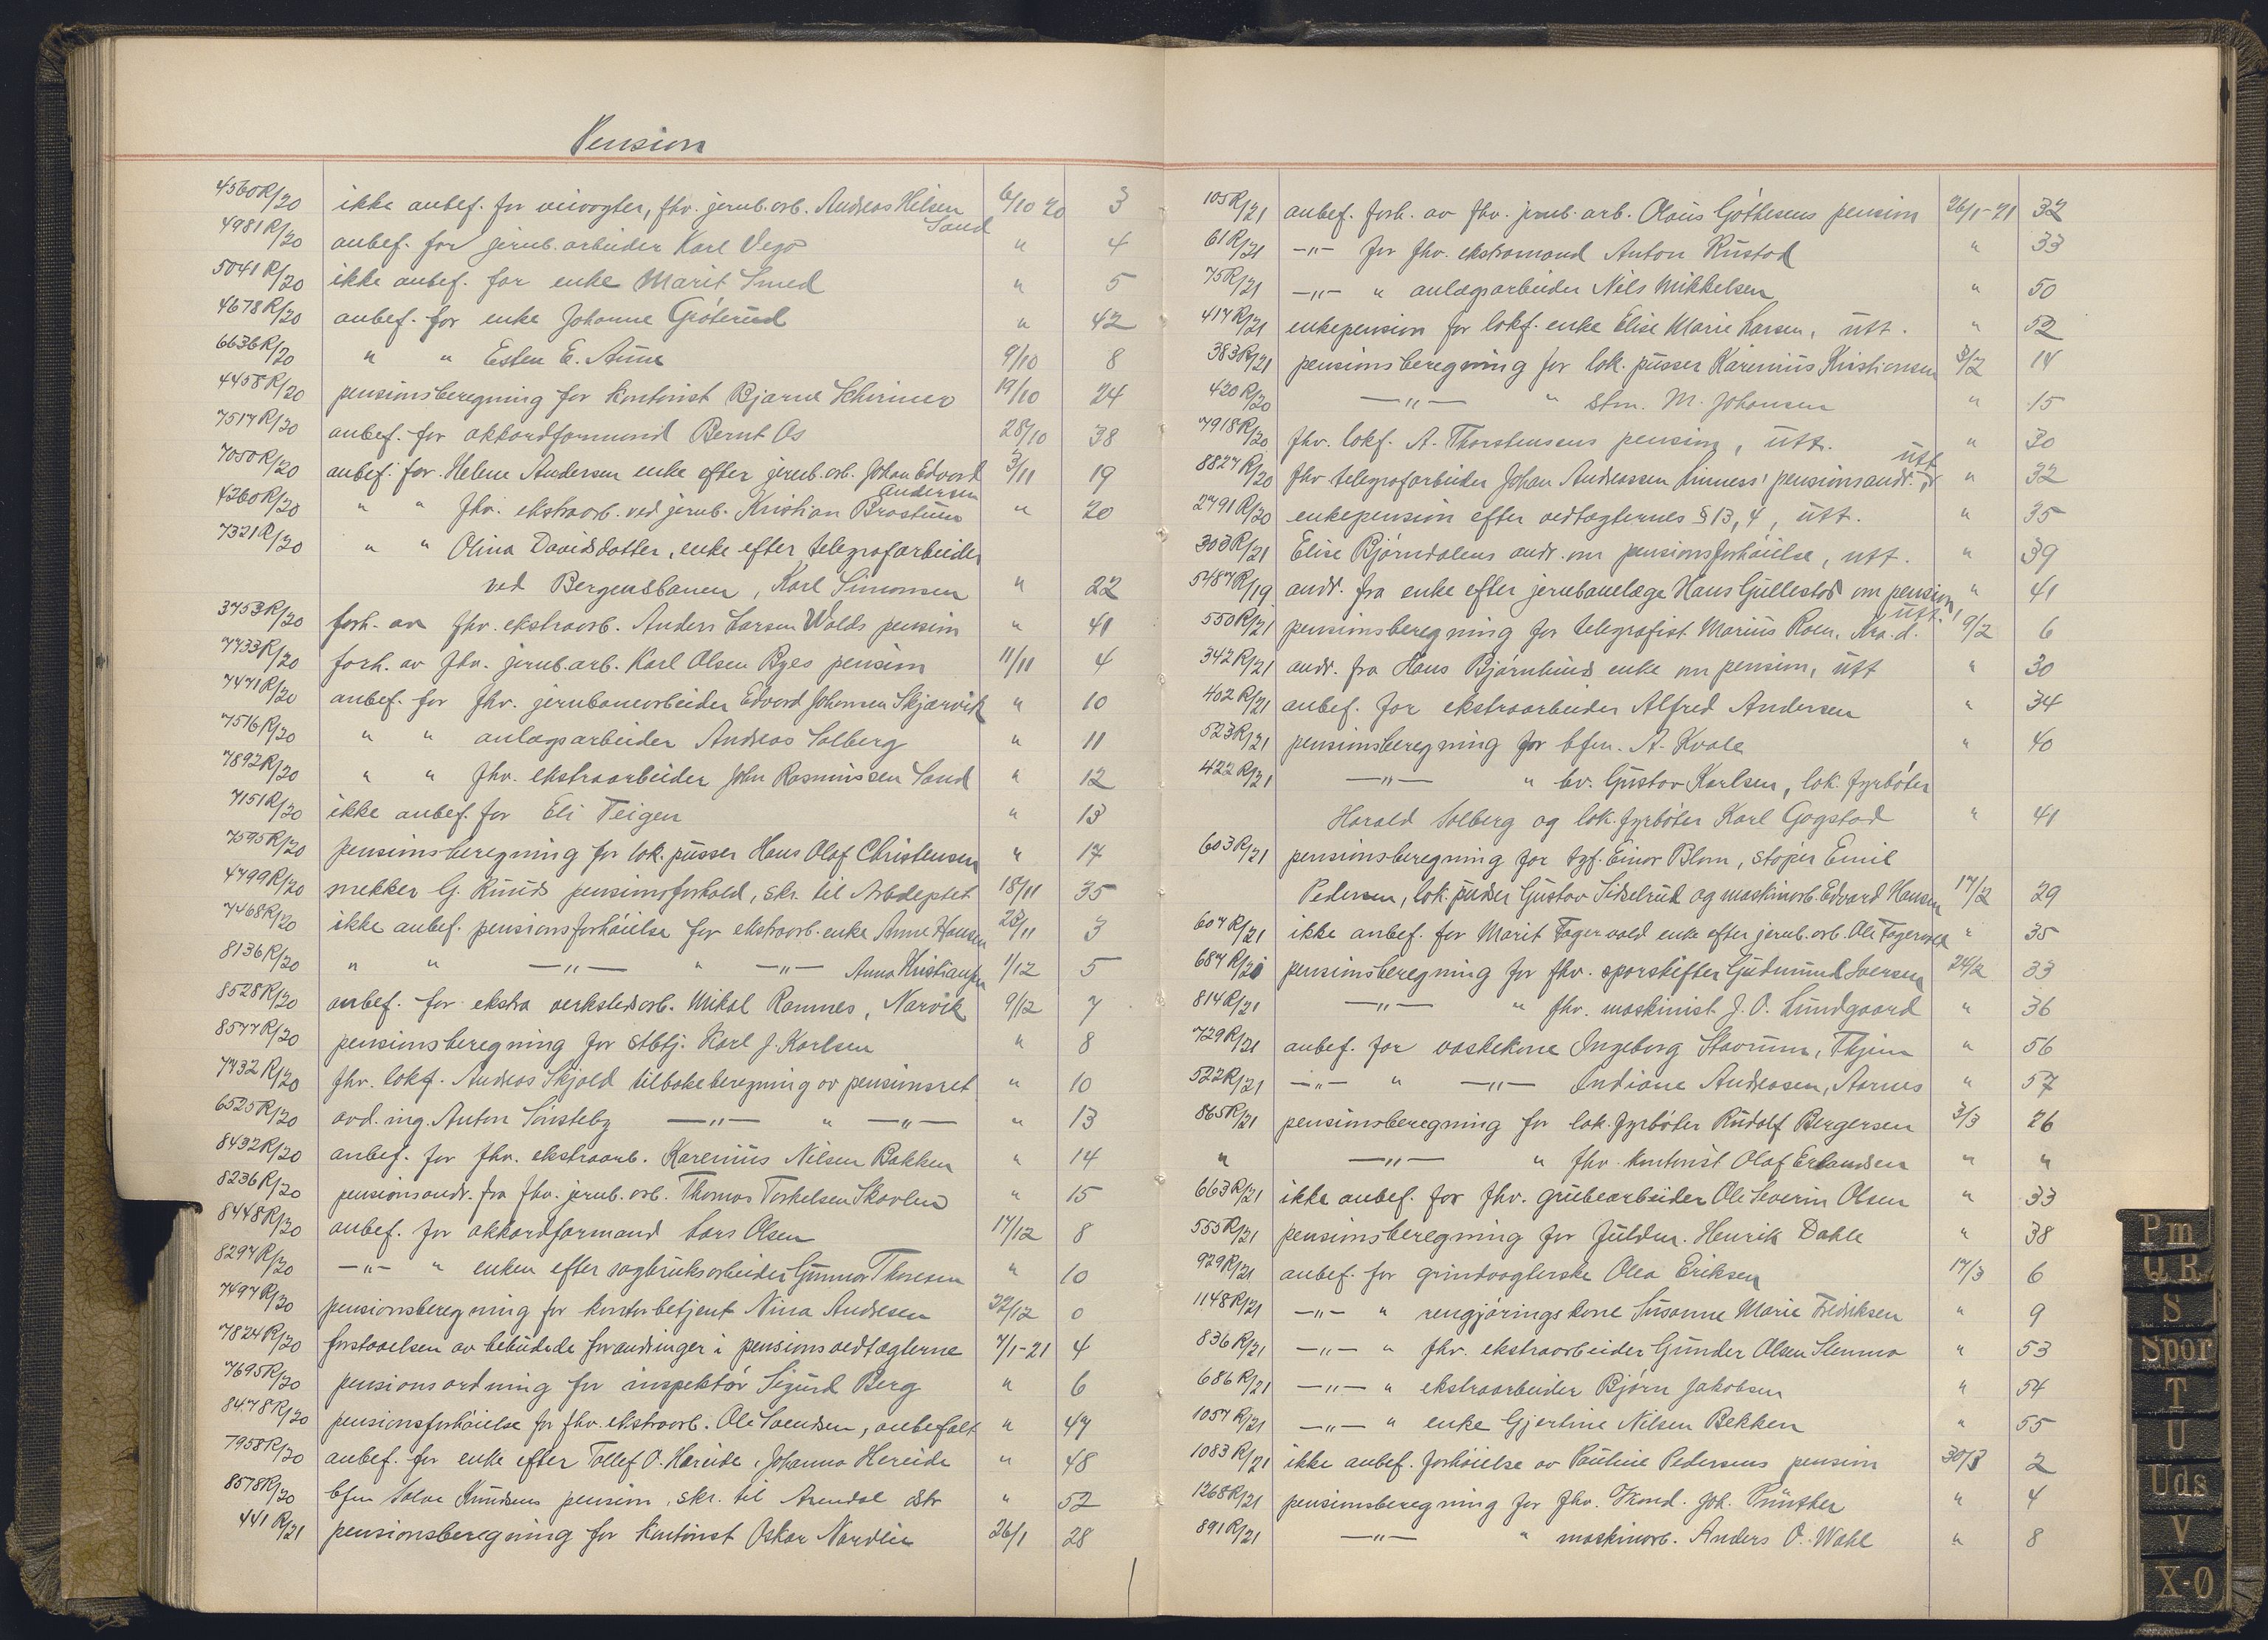 Pension
4560R/20 ikke anbef. for veivogter, fhv. jernb.arb. Andreas Hilsen Sand 6/10 20 3
4981R/20 anbef. for jernb.arbeider Karl Vegö " 4
5041R/20 ikke anbef. for enke Marit Smed " 5
4678R/20 anbef. for enke Johanne Gröterud " 42
6636R/20 " " Esten E. Aune 9/10 8
4458R/20 pensionsberegning for kontorist Bjarne Schirmer 19/10 24
7517R/20 anbef. for akkordformand Bernt Os 28/10 38
7050R/20 anbef. for Helene Andersen enke efter jernb.arb. Johan Edvard Andersen 3/11 19
4260R/20 " " fhv. ekstraarb. ved jernb. Kristian Brostuen " 20
7321R/20 " " Olina Davidsdatter, enke efter telegrafarbeider
ved Bergensbanen, Karl Simonsen " 22
3753R/20 forh. av fhv. ekstraarb. Anders Larsen Wolds pension " 41
7733R/20 forh. av fhv. jernb.arb. Karl Olsen Ryes pension 11/11 4
7471R/20 anbef. for fhv. jernbanearbeider Edvard Johansen Skjærvik " 10
7516R/20 " " anlægsarbeider Andreas Solberg " 11
7892R/20 " " fhv. ekstraarbeider John Rasmussen Sand " 12
7151R/20 ikke anbef. for Eli Teigen " 13
7595R/20 pensionsberegning for lok. pusser Hans Olaf Christensen " 17
4799R/20 snekker G. Ruuds pensionsforhold, skr. til Arb.deptet 18/11 35
7468R/20 ikke anbef. pensionsforhöielse for ekstraarb. enke Anne Hansen 23/11 3
8136R/20 " " —"— " —"— Anna Kristiansen 1/12 5
8528R/20 anbef. for ekstra verkstedsarb. Mikal Ramnes, Narvik 9/12 7
8577R/20 pensionsberegning for stbtj. Karl J. Karlsen " 8
7732R/20 fhv. lokf. Andreas Skjold tilbakeberegning av pensionsret " 10
6525R/20 avd. ing. Anton Sönsteby —"— " —"— " 13
8432R/20 anbef. for fhv. ekstraarb. Karenius Nilsen Bakken " 14
8236R/20 pensionsandr. fra fhv. jernb. arb. Thomas Torkelsen Skovlud " 15
8448R/20 anbef. for akkordformand Lars Olsen 17/12 8
8297R/20 —"— " enken efter sagbruksarbeider Gunnar Thoresen " 10
7497R/20 pensionsberegning for kontorbetjent Nina Andresen 22/12 0
7824R/20 forstaaelsen av bebudede forandringer i pensionsvedtægterne 7/1-21 4
7695R/20 pensionsordning for inspektör Sigurd Berg " 6
8478R/20 pensionsforhöielse for fhv. ekstraarb. Ole Svendsen, anbefalt " 47
7958R/20 anbef. for enke efter Tollef O. Hareide, Johanna Hereide " 48
8578R/20 bfm Salve Knudsens pension, skr. til Arendal dstr " 52
441R/21 pensionsberegning for kontorist Oskar Nordlie 26/1 28
105R/21 anbef. forh. av fhv. jernb. arb. Olaus Göthesens pension 26/1-21 32
61R/21 —"— for fhv. ekstramand Anton Rustad " 33
75R/21 —"— " anlægsarbeider Nils Mikkelsen " 50
417R/21 enkepension for lokf. enke Elise Marie Larsen, utt. " 52
383R/21 pensionsberegning for lok. pusser Karenius Kristiansen 3/2 14
420R/20 —"— " stm. M. Johansen " 15
7918R/20 fhv. lokf. A. Thorstensens pension, utt. " 30
8827R/20 fhv telegrafarbeider Johan Andreassen Linness' pensionsandr. utt " 32
2791R/20 enkepension efter vedtægternes § 13, 4, utt. " 35
303R/21 Elise Björndalens andr. om pensionsforhöielse, utt. " 39
5487R/19 andr. fra enke efter jernbanelæge Hans Gullestad om pension, utt.! " 41
550R/21 pensionsberegning for telegrafist Marius Roen, Kra. d. 9/2 6
342R/21 andr. fra Hans Bjørnhuns enke om pension, utt " 30
402R/21 anbef. for ekstraarbeider Alfred Andersen " 34
523R/21 pensionsberegning for bfm. A. Kvale " 40
422R/21 —"— " bv. Gustav Karlsen, lok. fyrböter
Harald Solberg og lok. fyrböter Karl Gogstad " 41
603R/21 pensionsberegning for tgf. Einar Blom, stöper Emil
Pedersen, lok. pudser Gustav Sidselrud og maskinarb. Edvard Hansen 17/2 29
607R/21 ikke anbef. for Marit Fagervold enke efter jernb. arb. Ole Fagervold " 35
687R/21 pensionsberegning for fhv. sporskifter Gudmund Iversen 24/2 33
814R/21 —"— " fhv. maskinist J. O. Lundgaard " 36
729R/21 anbef. for vaskekone Ingeborg Stavrum, Thjem " 56
522R/21 —"— " —"— Indiane Andreasen, Aarnes " 57
865R/21 pensionsberegning for lok. fyrböter Rudolf Bergersen 3/3 26
" —"— " fhv. kontorist Olaf Erlandsen " "
663R/21 ikke anbef. for fhv. grubearbeider Ole Severin Olsen " 33
555R/21 pensionsberegning for fuldm. Henrik Dahle " 38
929R/21 anbef. for grindvogterske Olea Eriksen 17/3 6
1148R/21 —"— " rengjöringskone Susanne Marie Fredriksen " 9
836R/21 —"— " fhv. ekstraarbeider Gunder Olsen Stemmo " 53
686R/21 —"— " ekstraarbeider Björn Jakobsen " 54
1057R/21 —"— " enke Gjerline Nilsen Bekken " 55
1083R/21 ikke anbef. forhöielse av Pauline Pedersens pension 30/3 2
1268R/21 pensionsberegning for fhv. Joh. Günther " 4
891R/21 —"— " maskinarb. Anders O. Wahl " 8
Pm
Q R
S
Spor
T
U
Uds
V
X-Ø